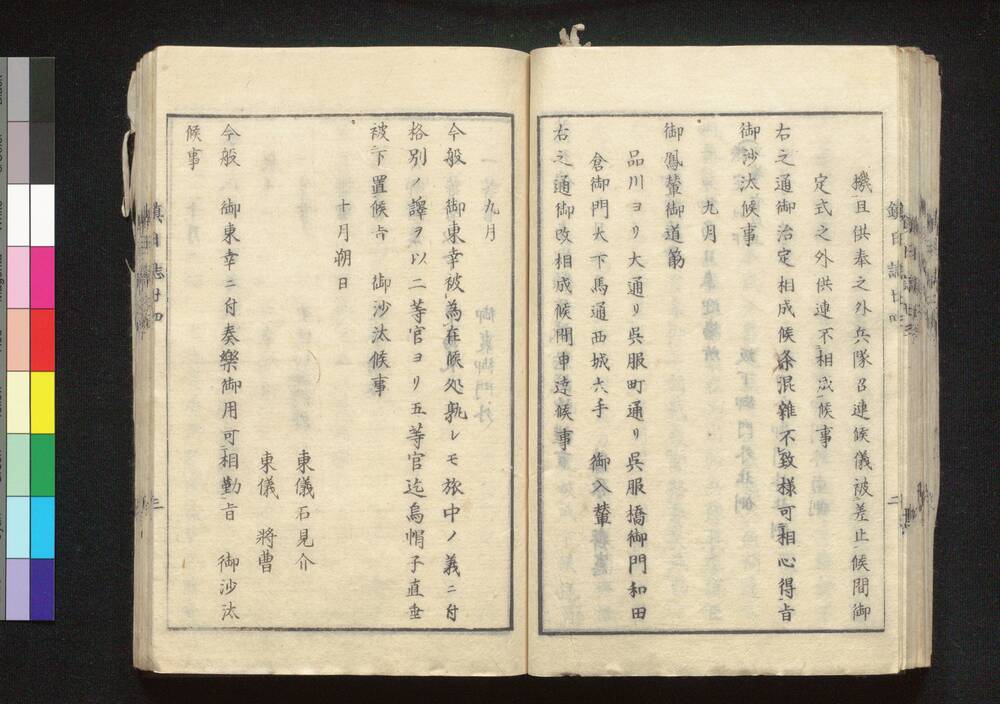 機且供奉之外兵隊召連候儀被差止候間御
定式之外供連不相成候事
右之通御治定相成候条混雑不致様可相心得旨
御沙汰候事
九月
御鳳輦御道筋
品川ヨリ大通リ呉服町通リ呉服橋御門和田
倉御門大下馬通西城大手　御入輦
右之通御改相成候間申達候事
九月
今般　御東幸被為在候処孰レモ旅中ノ義ニ付
格別ノ譯ヲ以二等官ヨリ五等官迄烏帽子直垂
被下置候旨　御沙汰候事
十月朔日
東儀石見介
東儀　將曹
今般　御東幸ニ付奏樂御用可相勤旨　御沙汰
候事
鎮日誌廿四
二
鎮日誌廿四
三